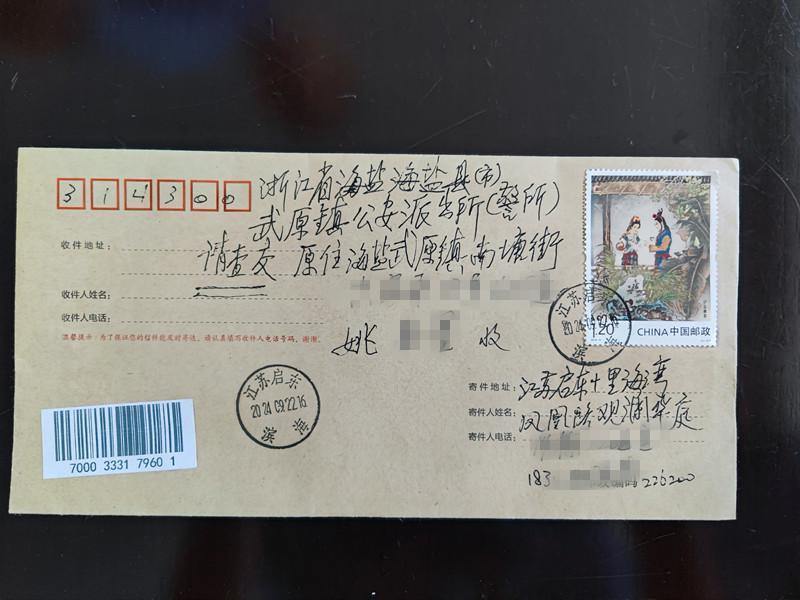 314300
浙江省海盐海盐县(市)
武原镇公安派出所(警所)
请查交 原住海盐武原镇南塘街
收件地址:
收件人姓名:
收件人电话:
温馨提示:为了保证您的信件能及时寄达,请认真填写收件人电话号码,谢谢。
姚 收
120
CHINA中国邮政
江苏启东
2024.09.22.16
滨海
江苏启东
2024.09.22.16
滨海
7000 3331 7960 1
寄件地址: 江苏启东十里海湾
寄件人姓名: 凤凰路观澜华庭
寄件人电话:
183 编码 226200